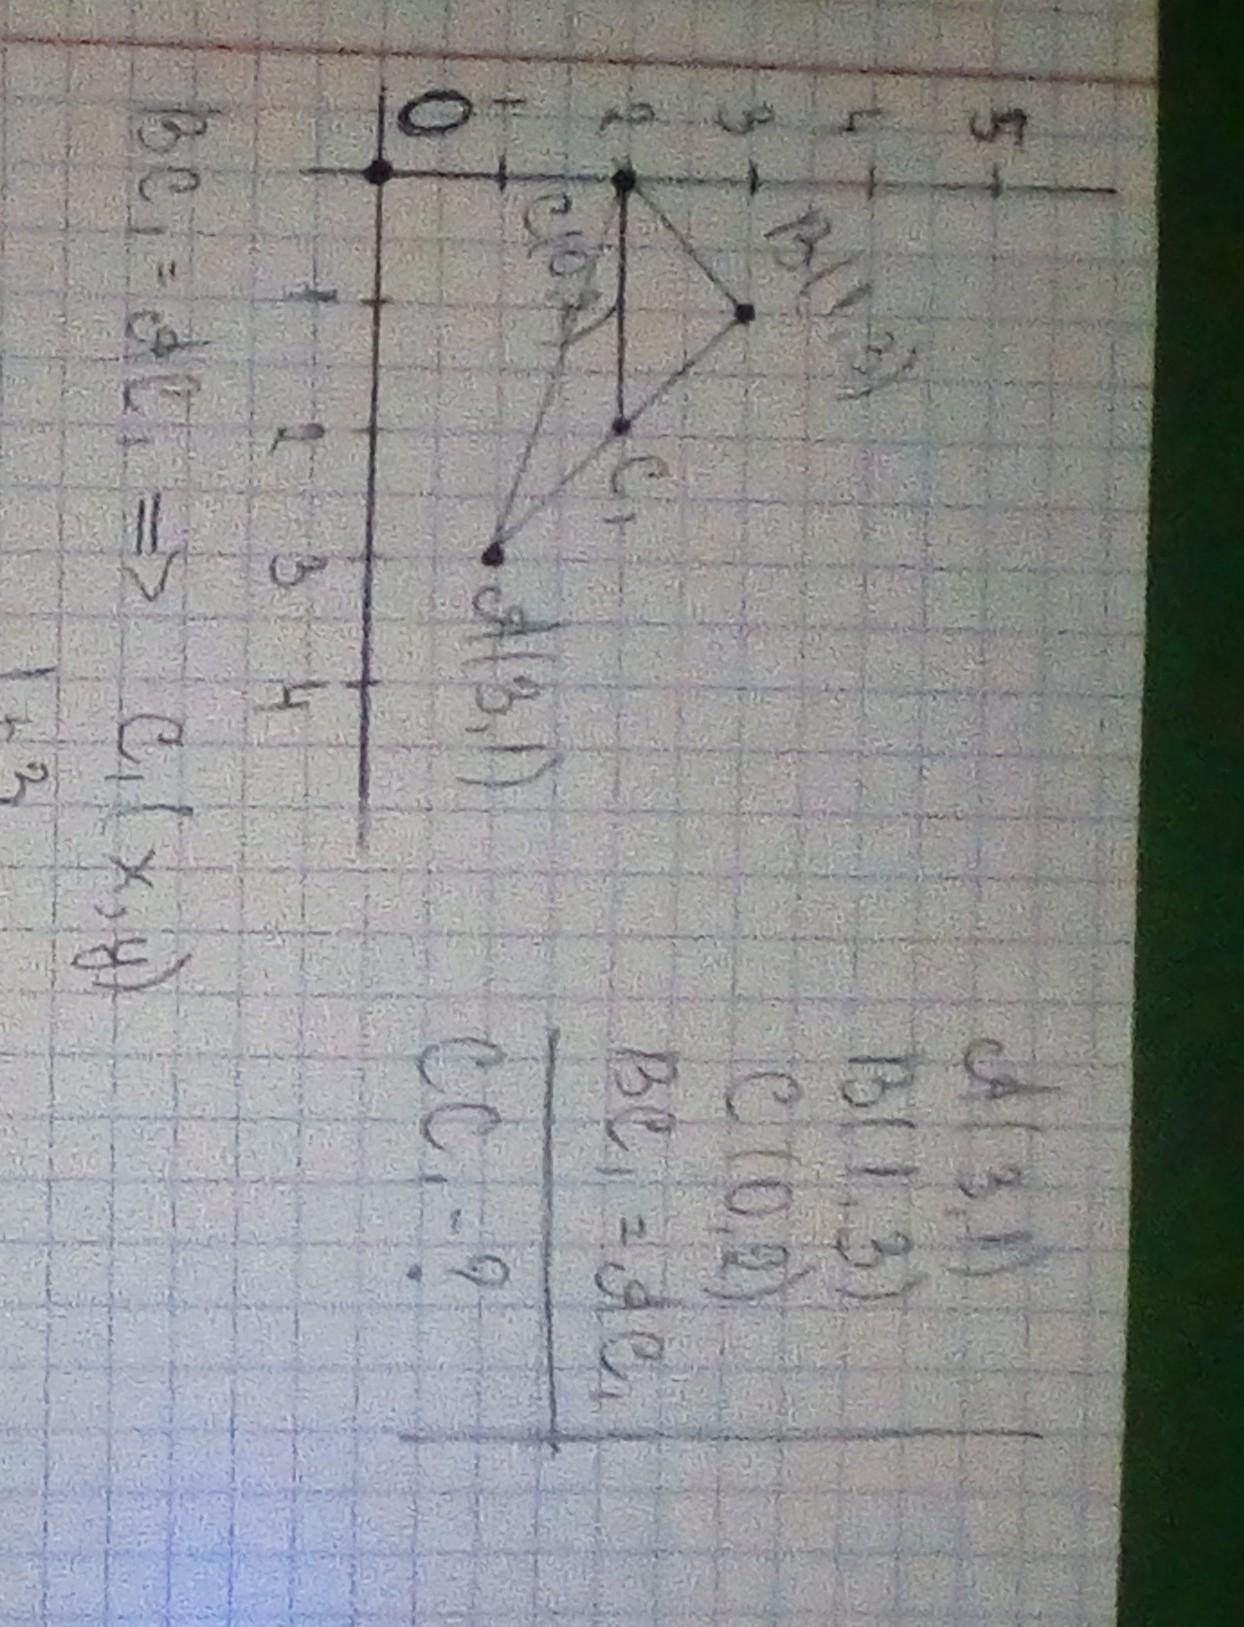 A(3,1)
B(1,3)
C(0,2)
BC₁ = AC₁
CC₁ - ?
5
4
3
2
1
0
B(1,3)
C(0,2)
C₁
A(3,1)
1 2 3 4
BC₁ = AC₁ => C₁(x,y)
1+3